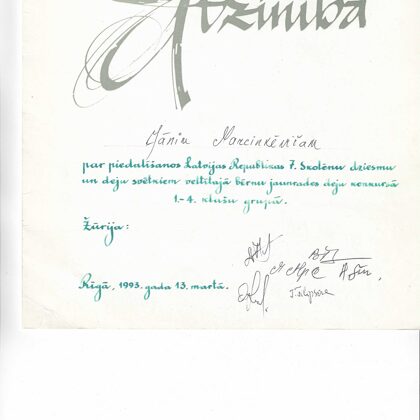 Atzinība
Jānim Marcinkēvičam
par piedalīšanos Latvijas Republikas 7. Skolēnu dziesmu
un deju svētkiem veltītajā bērnu jaunrades deju konkursā
1.-4. klašu grupā.
Žūrija:
Rīgā, 1993. gada 13. martā.